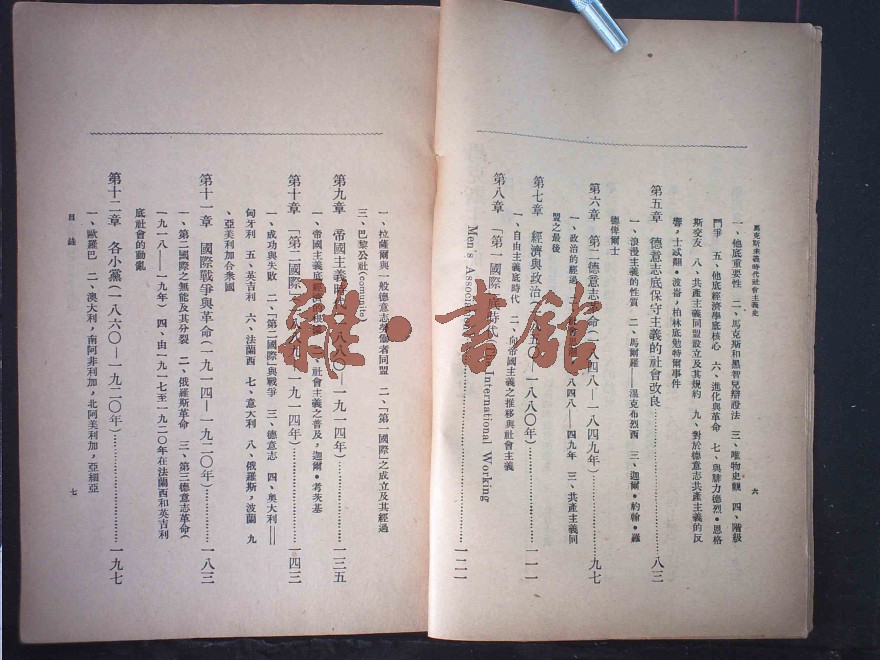 馬克斯主義時代社會主義史
一、他底重要性　二、馬克斯和黑智兒辯證法　三、唯物史觀　四、階級
鬥爭　五、他底經濟學底核心　六、進化與革命　七、與腓力德烈・恩格
斯交友　八、共產主義同盟設立及其規約　九、對於德意志共產主義的反
響，士忒翻・波崙，柏林底勉特爾事件
第五章　德意志底保守主義的社會改良…………八三
一、浪漫主義的性質　二、馬爾羅——溫克布烈西　三、迦爾・約翰・羅
德俾爾士
第六章　第二德意志革命（一八四八—一八四九年）…………九七
一、政治的經過　八四八—四九年　三、共產主義同
盟之最後
第七章　經濟與政治　五〇—一八八〇年）…………一一一
一、自由主義底時代　二、向帝國主義之推移與社會主義
第八章　「第一國際」底時代　International Working
Men's Association…………一二一
六
一、拉薩爾與一般德意志勞働者同盟　二、「第一國際」之成立及其經過
三、巴黎公社(comunite)
第九章　帝國主義時代　八八〇—一九一四年）…………一三五
一、帝國主義底經濟的根據　二、社會主義之普及，迦爾・考茨基
第十章　「第二國際」　八八九—一九一四年）…………一四三
一、成功與失敗　二、「第二國際」與戰爭　三、德意志　四、奧大利——
匈牙利　五、英吉利　六、法蘭西　七、意大利　八、俄羅斯，波蘭　九
、亞美利加合衆國
第十一章　國際戰爭與革命（一九一四—一九二〇年）…………一八三
一、第二國際之無能及其分裂　二、俄羅斯革命　三、第三德意志革命（
一九一八——一九年）　四、由一九一七至一九二〇年在法蘭西和英吉利
底社會的動亂
第十二章　各小黨（一八六〇—一九二〇年）…………一九七
一、歐羅巴　二、澳大利，南阿非利加，北阿美利加，亞細亞
目錄
七
雜・書館